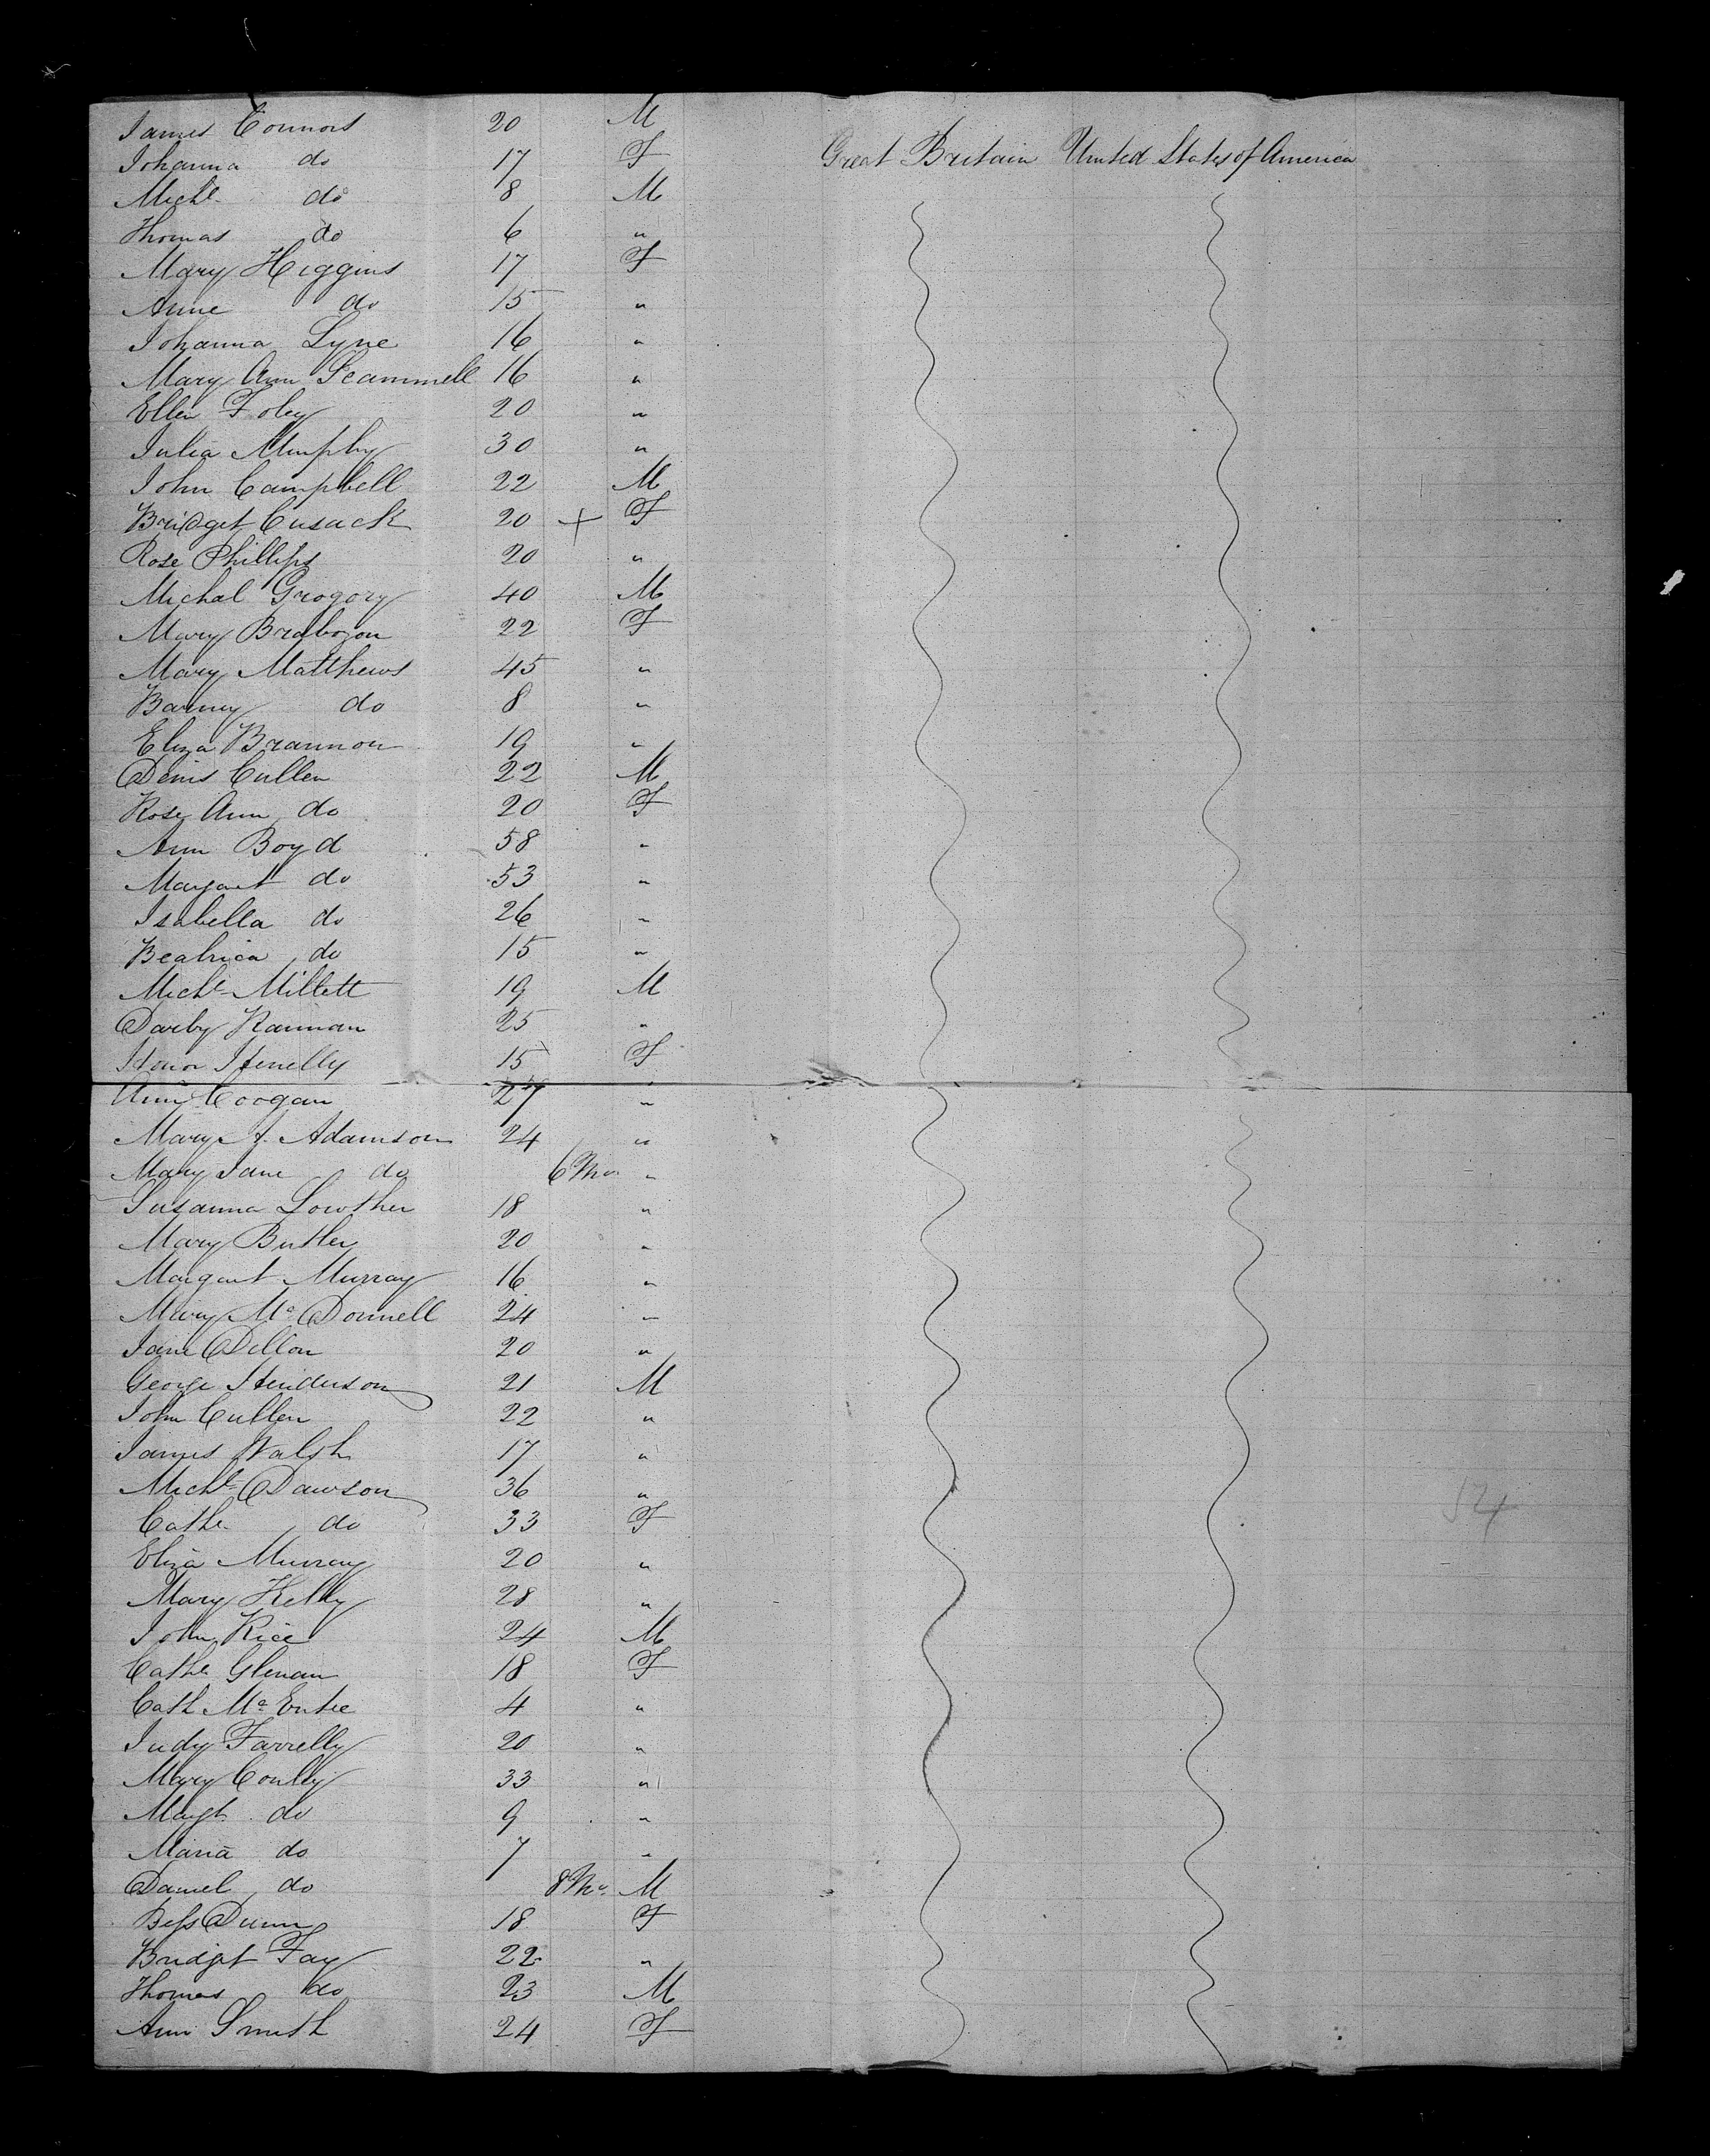 James Connors 20 M
Johanna do 17 F Great Britain United States of America
Michl. do 8 M
Thomas do 6 "
Mary Higgins 17 F
Anne do 15 "
Johanna Lyne 16 "
Mary Ann Scammell 16 "
Ellen Foley 20 "
Julia Murphy 30 "
John Campbell 22 M
Bridget Cusack 20 + F
Rose Phillips 20 "
Michal Grogory 40 M
Mary Brabozon 22 F
Mary Matthews 45 "
Barney do 8 "
Eliza Brannon 19 "
Denis Cullen 22 M
Rose Ann do 20 F
Ann Boyd 58 "
Margaret do 53 "
Isabella do 26 "
Beatrice do 15 "
Michl. Millett 19 M
Darby Rannan 25 "
Honor Henelly 15 F
Ann Coogan 27 "
Mary A. Adamson 24 "
Mary Jane do 6 Mo "
Susanna Lowther 18 "
Mary Butler 20 "
Margaret Murray 16 "
Mary McDonnell 24 "
Jane Dillon 20 "
George Henderson 21 M
John Cullen 22 "
James Walsh 17 "
Michl. Dawson 36 "
Cathe. do 33 F
Eliza Murray 20 "
Mary Kelly 28 "
John Rice 24 M
Cathe Glenan 18 F
Cath McEntee 4 "
Judy Farrelly 20 "
Mary Conley 33 "
Margt. do 9 "
Maria do 7 "
Daniel do 8 Mo. M
Bess Dunn 18 F
Bridget Fay 22 "
Thomas do 23 M
Ann Smith 24 F